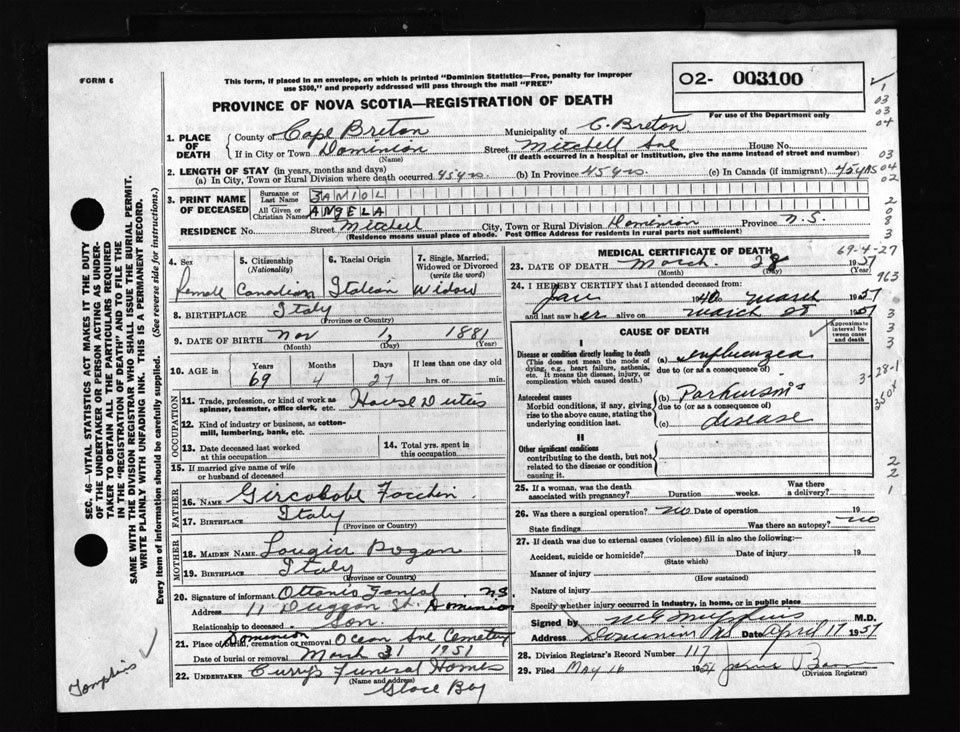 FORM 6
This form, if placed in an envelope, on which is printed "Dominion Statistics—Free, penalty for improper
use $300," and properly addressed will pass through the mail "FREE"
PROVINCE OF NOVA SCOTIA—REGISTRATION OF DEATH
02- 003100
For use of the Department only
1. PLACE OF DEATH
County of Cape Breton Municipality of C. Breton
If in City or Town Dominion Street Mitchell Ave House No.
(Name) (If death occurred in a hospital or institution, give the name instead of street and number)
2. LENGTH OF STAY (in years, months and days)
(a) In City, Town or Rural Division where death occurred 45 yrs. (b) In Province 45 yrs (c) In Canada (if immigrant) 45 yrs
3. PRINT NAME OF DECEASED
Surname or Last Name ZANIOL
All Given or Christian Names ANGELA
RESIDENCE No. Street Mitchell City, Town or Rural Division Dominion Province N.S.
(Residence means usual place of abode. Post Office Address for residents in rural parts not sufficient)
4. Sex Female
5. Citizenship (Nationality) Canadian
6. Racial Origin Italian
7. Single, Married, Widowed or Divorced (write the word) Widow
8. BIRTHPLACE Italy
(Province or Country)
9. DATE OF BIRTH Nov 1, 1881
(Month) (Day) (Year)
10. AGE in Years 69 Months 4 Days 27 If less than one day hrs. or min.
OCCUPATION
11. Trade, profession, or kind of work as spinner, teamster, office clerk, etc. House Duties
12. Kind of industry or business, as cotton-mill, lumbering, bank, etc.
13. Date deceased last worked at this occupation
14. Total yrs. spent in this occupation
15. If married give name of wife or husband of deceased
FATHER
16. NAME
17. BIRTHPLACE Italy
(Province or Country)
MOTHER
18. MAIDEN NAME
19. BIRTHPLACE Italy
(Province or Country)
20. Signature of informant
Address 11 Duggan St. Dominion N.S.
Relationship to deceased Son.
21. Place of burial, cremation or removal Dominion Ocean Ave Cemetery
Date of burial or removal March 31 1951
22. UNDERTAKER Curry's Funeral Homes
(Name and address) Glace Bay
MEDICAL CERTIFICATE OF DEATH
23. DATE OF DEATH March 28 1951
(Month) (Day) (Year)
24. I HEREBY CERTIFY that I attended deceased from:
Jan 19 to March 1951
and last saw her alive on March 1951
CAUSE OF DEATH
Approximate interval between onset and death
I
Disease or condition directly leading to death
(This does not mean the mode of dying, e.g., heart failure, asthenia, etc. It means the disease, injury, or complication which caused death.)
(a) influenza
due to (or as a consequence of)
Antecedent causes
Morbid conditions, if any, giving rise to the above cause, stating the underlying condition last.
(b) Parkinson's
due to (or as a consequence of)
(c) disease
II
Other significant conditions
contributing to the death, but not related to the disease or condition causing it.
25. If a woman, was the death associated with pregnancy? Duration weeks. Was there a delivery?
26. Was there a surgical operation? no Date of operation 19
State findings Was there an autopsy? no
27. If death was due to external causes (violence) fill in also the following:—
Accident, suicide or homicide? Date of injury 19
(State which)
Manner of injury
(How sustained)
Nature of injury
Specify whether injury occurred in industry, in home, or in public place
Signed by M.D.
Address Dominion NS Date April 17 1951
28. Division Registrar's Record Number 117
29. Filed May 16 1951
(Division Registrar)
SEC. 46—VITAL STATISTICS ACT MAKES IT THE DUTY
OF THE UNDERTAKER OR PERSON ACTING AS UNDERTAKER
TO OBTAIN ALL THE PARTICULARS REQUIRED
IN THE "REGISTRATION OF DEATH" AND TO FILE THE
SAME WITH THE DIVISION REGISTRAR WHO SHALL ISSUE THE BURIAL PERMIT.
WRITE PLAINLY WITH UNFADING INK. THIS IS A PERMANENT RECORD.
Every item of information should be carefully supplied. (See reverse side for instructions.)
1
03
03
04
03
04
02
2
0
8
3
69-4-27
963
3
3
3
3-28-1
350X
2
2
1